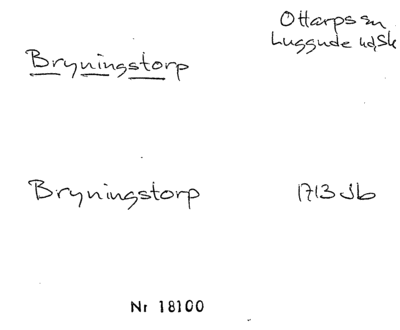 Ottarps sn
Luggude hd, Sk
Bryningstorp
Bryningstorp 1713 Jb
Nr 18100